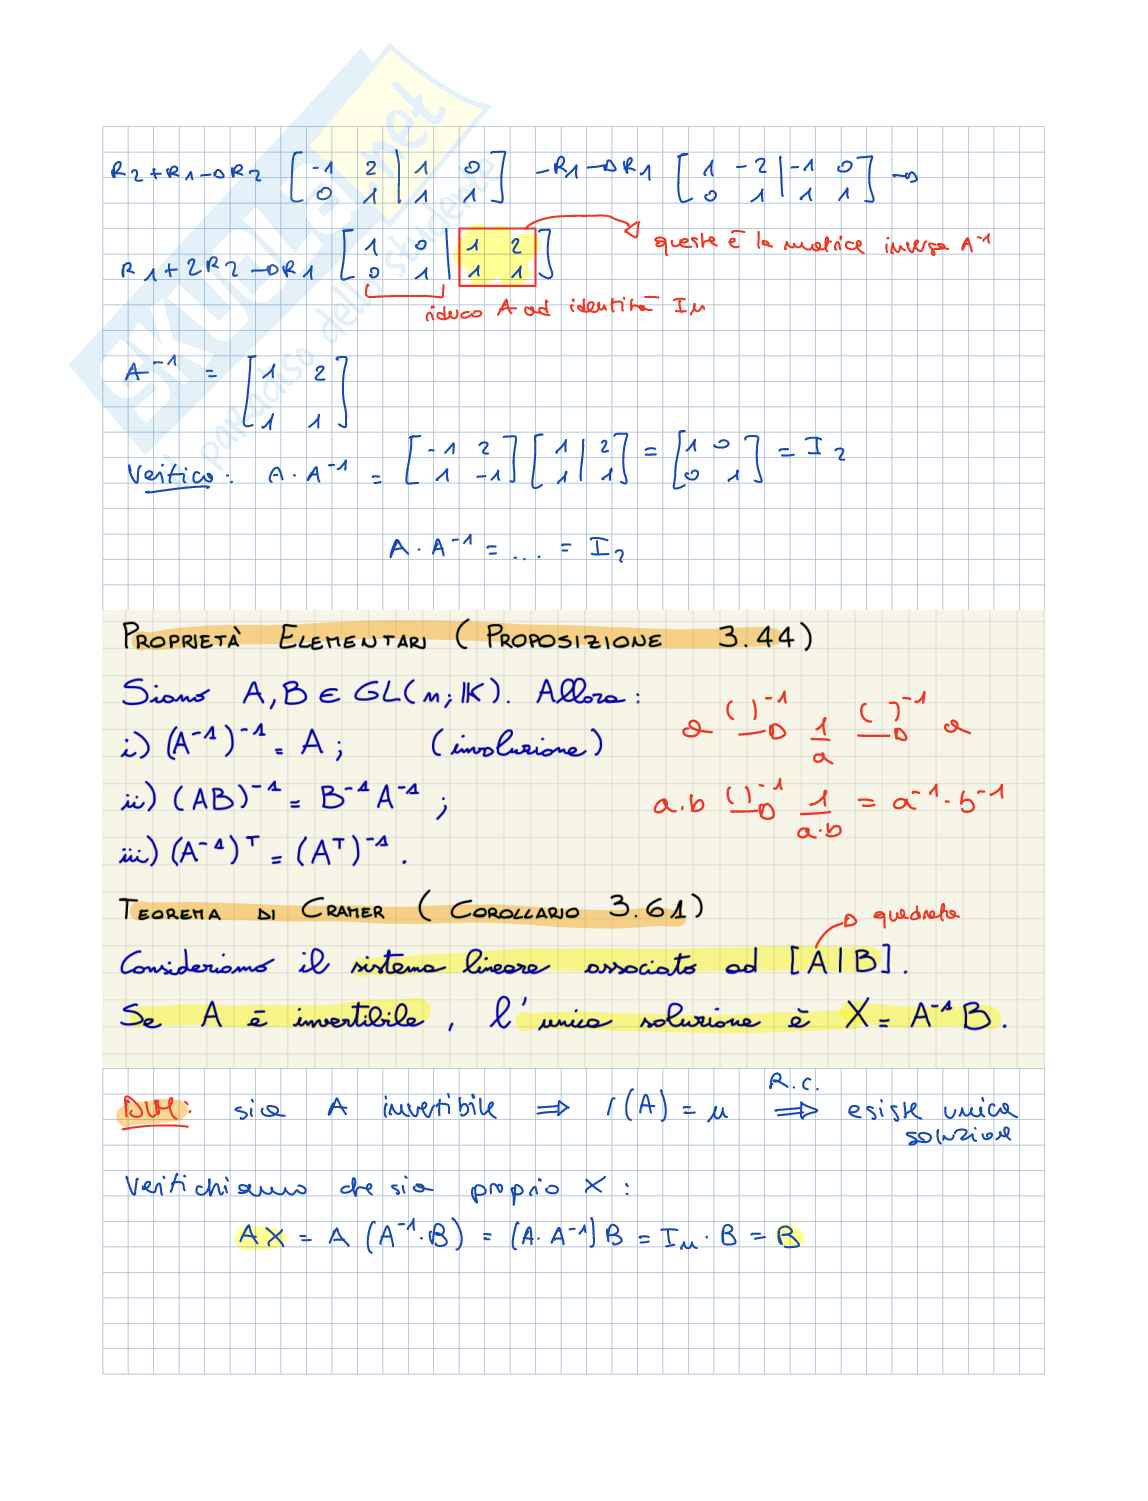 R2+R1→R2 [-1 2 | 1 0; 0 1 | 1 1] -R1→R1 [1 -2 | -1 0; 0 1 | 1 1] →
R1+2R2→R1 [1 0 | 1 2; 0 1 | 1 1] queste è la matrice inversa A⁻¹
riduco A ad identità In
A⁻¹ = [1 2; 1 1]
Verifico: A·A⁻¹ = [-1 2; 1 -1] [1 | 2; 1 | 1] = [1 0; 0 1] = I₂
A·A⁻¹ = ... = I₂
PROPRIETÀ ELEMENTARI (PROPOSIZIONE 3.44)
Siano A, B ∈ GL(n; K). Allora:
i) (A⁻¹)⁻¹ = A; (involuzione) a —( )⁻¹→ 1/a —( )⁻¹→ a
ii) (AB)⁻¹ = B⁻¹A⁻¹; a·b —( )⁻¹→ 1/(a·b) = a⁻¹·b⁻¹
iii) (A⁻¹)ᵀ = (Aᵀ)⁻¹.
TEOREMA DI CRAMER (COROLLARIO 3.61)
→ quadrata
Consideriamo il sistema lineare associato ad [A|B].
Se A è invertibile, l'unica soluzione è X = A⁻¹B.
DIM: sia A invertibile ⇒ r(A) = n ⇒ (R.C.) esiste unica
soluzione
Verifichiamo che sia proprio X:
AX = A(A⁻¹·B) = (A·A⁻¹)B = In·B = B
SKUOLA.net
il paradiso dello studente